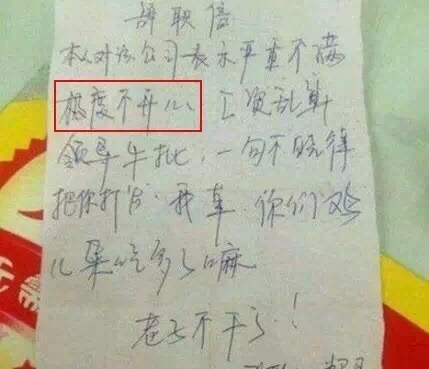 辞职信
本人对该公司表示严重不满
态度不开心、工资乱算
领导牛批,一句不晓得
把你打发.我草,你们鸡
儿果吃多了嘛
老子不干了!